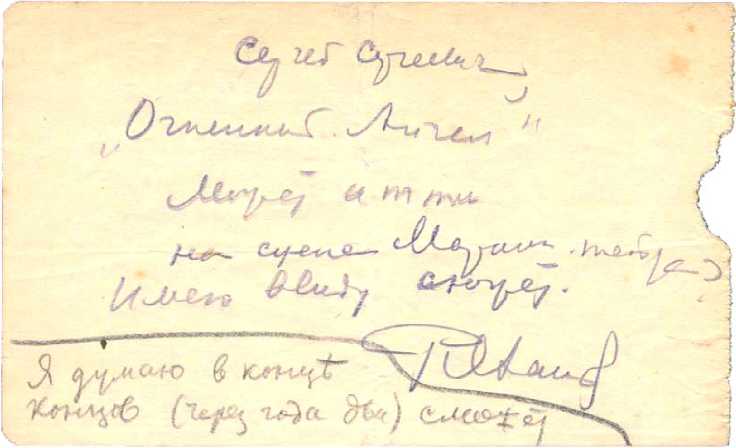 Сергей Сергеевич,
„Огненный Ангел"
Может итти
на сцене Мариин. театра?
Имею ввиду сюжет.
Я думаю в концѣ
концов (через года два) сможет